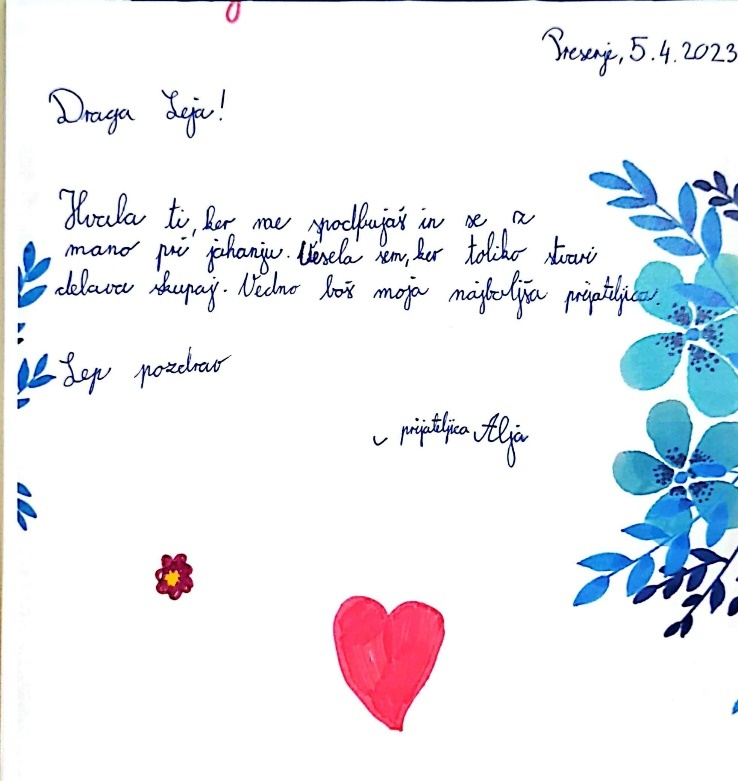 Preserje, 5.4.2023
Draga Leja!
Hvala ti, ker me spodbujaš in se z
mano pri jahanju. Vesela sem, ker toliko stvari
delava skupaj. Vedno boš moja najboljša prijateljica.
Lep pozdrav
prijateljica Alja